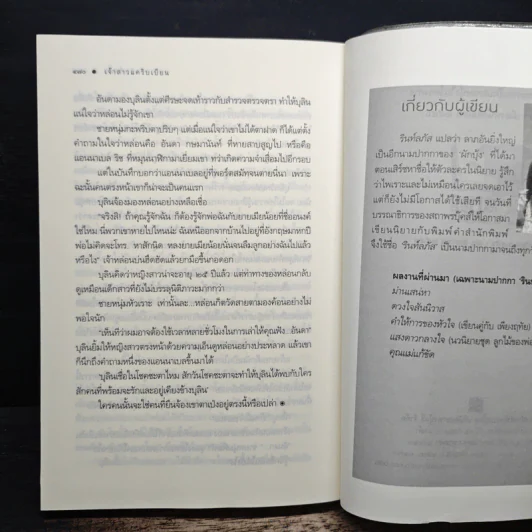 ๑๗๐ ● เจ้าสาวแคริบเบียน
อันดามองบุลินตั้งแต่ศีรษะจดเท้าราวกับสำรวจตรวจตรา ทำให้บุลิน
แน่ใจว่าหล่อนไม่รู้จักเขา
ชายหนุ่มกะพริบตาปริบๆ แต่เมื่อแน่ใจว่าเขาไม่ได้ตาฝาด ก็ได้แต่ตั้ง
คำถามในใจว่าหล่อนคือ อันดา กษมานันท์ ที่หายสาบสูญไป หรือคือ
แอนนาเบล ริช ที่หมุนนาฬิกามาเยี่ยมเขา ทว่าเกิดความจำเสื่อมไปอีกรอบ
แต่ในบันทึกบอกว่าแอนนาเบลอยู่ที่พอร์ตสมัทจนตายนี่นา เพราะ
ฉะนั้นคนตรงหน้าเขาก็น่าจะเป็นคนแรก
บุลินจ้องมองหล่อนอย่างเหลือเชื่อ
“จริงสิ! ถ้าคุณรู้จักฉัน ก็ต้องรู้จักพ่อฉันกับยายเมียน้อยที่ชื่ออนงค์
ใช่ไหม นี่พวกเขาหายไปไหนน่ะ ฉันหนีออกจากบ้านไปอยู่ที่อังกฤษมาหกปี
พ่อไม่คิดจะโทร. หาสักนิด หลงยายเมียน้อยนั่นจนลืมลูกอย่างฉันไปแล้ว
หรือไง” เจ้าหล่อนบ่นฮึดฮัดแล้วยกมือขึ้นกอดอก
บุลินคิดว่าหญิงสาวน่าจะอายุ ๒๕ ปีแล้ว แต่ท่าทางของหล่อนกลับ
ดูเหมือนเด็กสาวที่ยังไม่บรรลุนิติภาวะมากกว่า
ชายหนุ่มหัวเราะ เท่านั้นละ...หล่อนก็ตวัดสายตามองค้อนอย่างไม่
พอใจนัก
“เห็นทีว่าผมอาจต้องใช้เวลาหลายชั่วโมงในการเล่าให้คุณฟัง...อันดา”
บุลินยิ้มให้หญิงสาวตรงหน้าด้วยความเอ็นดูหล่อนอย่างประหลาด แล้วเขา
ก็นึกถึงคำถามหนึ่งของแอนนาเบลขึ้นมาได้
‘บุลินเชื่อในโชคชะตาไหม สักวันโชคชะตาจะทำให้บุลินได้พบกับใคร
สักคนที่พร้อมจะรักและอยู่เคียงข้างบุลิน’
ใครคนนั้นจะใช่คนที่ยืนจ้องเขาตาเป๋งอยู่ตรงนี้หรือเปล่า ●
เกี่ยวกับผู้เขียน
รินท์ลภัส แปลว่า ลาภอันยิ่งใหญ่
เป็นอีกนามปากกาของ ‘ผักบุ้ง’ ที่
ตอนเสิร์ชหาชื่อให้ตัวละครในนิยาย รู้สึก
ว่าไพเราะและไม่เหมือนใครเลยจดเอาไว้
แต่ก็ยังไม่มีโอกาสได้ใช้เสียที จนวันที่
บรรณาธิการของสถาพรบุ๊คส์ให้โอกาสมา
เขียนนิยายกับพิมพ์คำสำนักพิมพ์
จึงใช้ชื่อ ‘รินท์ลภัส’ เป็นนามปากกามาจนถึงทุก
ผลงานที่ผ่านมา (เฉพาะนามปากกา
ม่านเสน่หา
ดวงใจสันนิวาส
คำให้การของหัวใจ (เขียนคู่กับ เพียงฤทัย)
แสงดาวกลางใจ (นวนิยายชุด ลูกไม้ของพ่อ
คุณแม่แก้ขัด